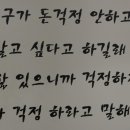 구가 돈걱정 안하고
살고 싶다고 하길래
있으니까 걱정하
걱정 하라고 말해